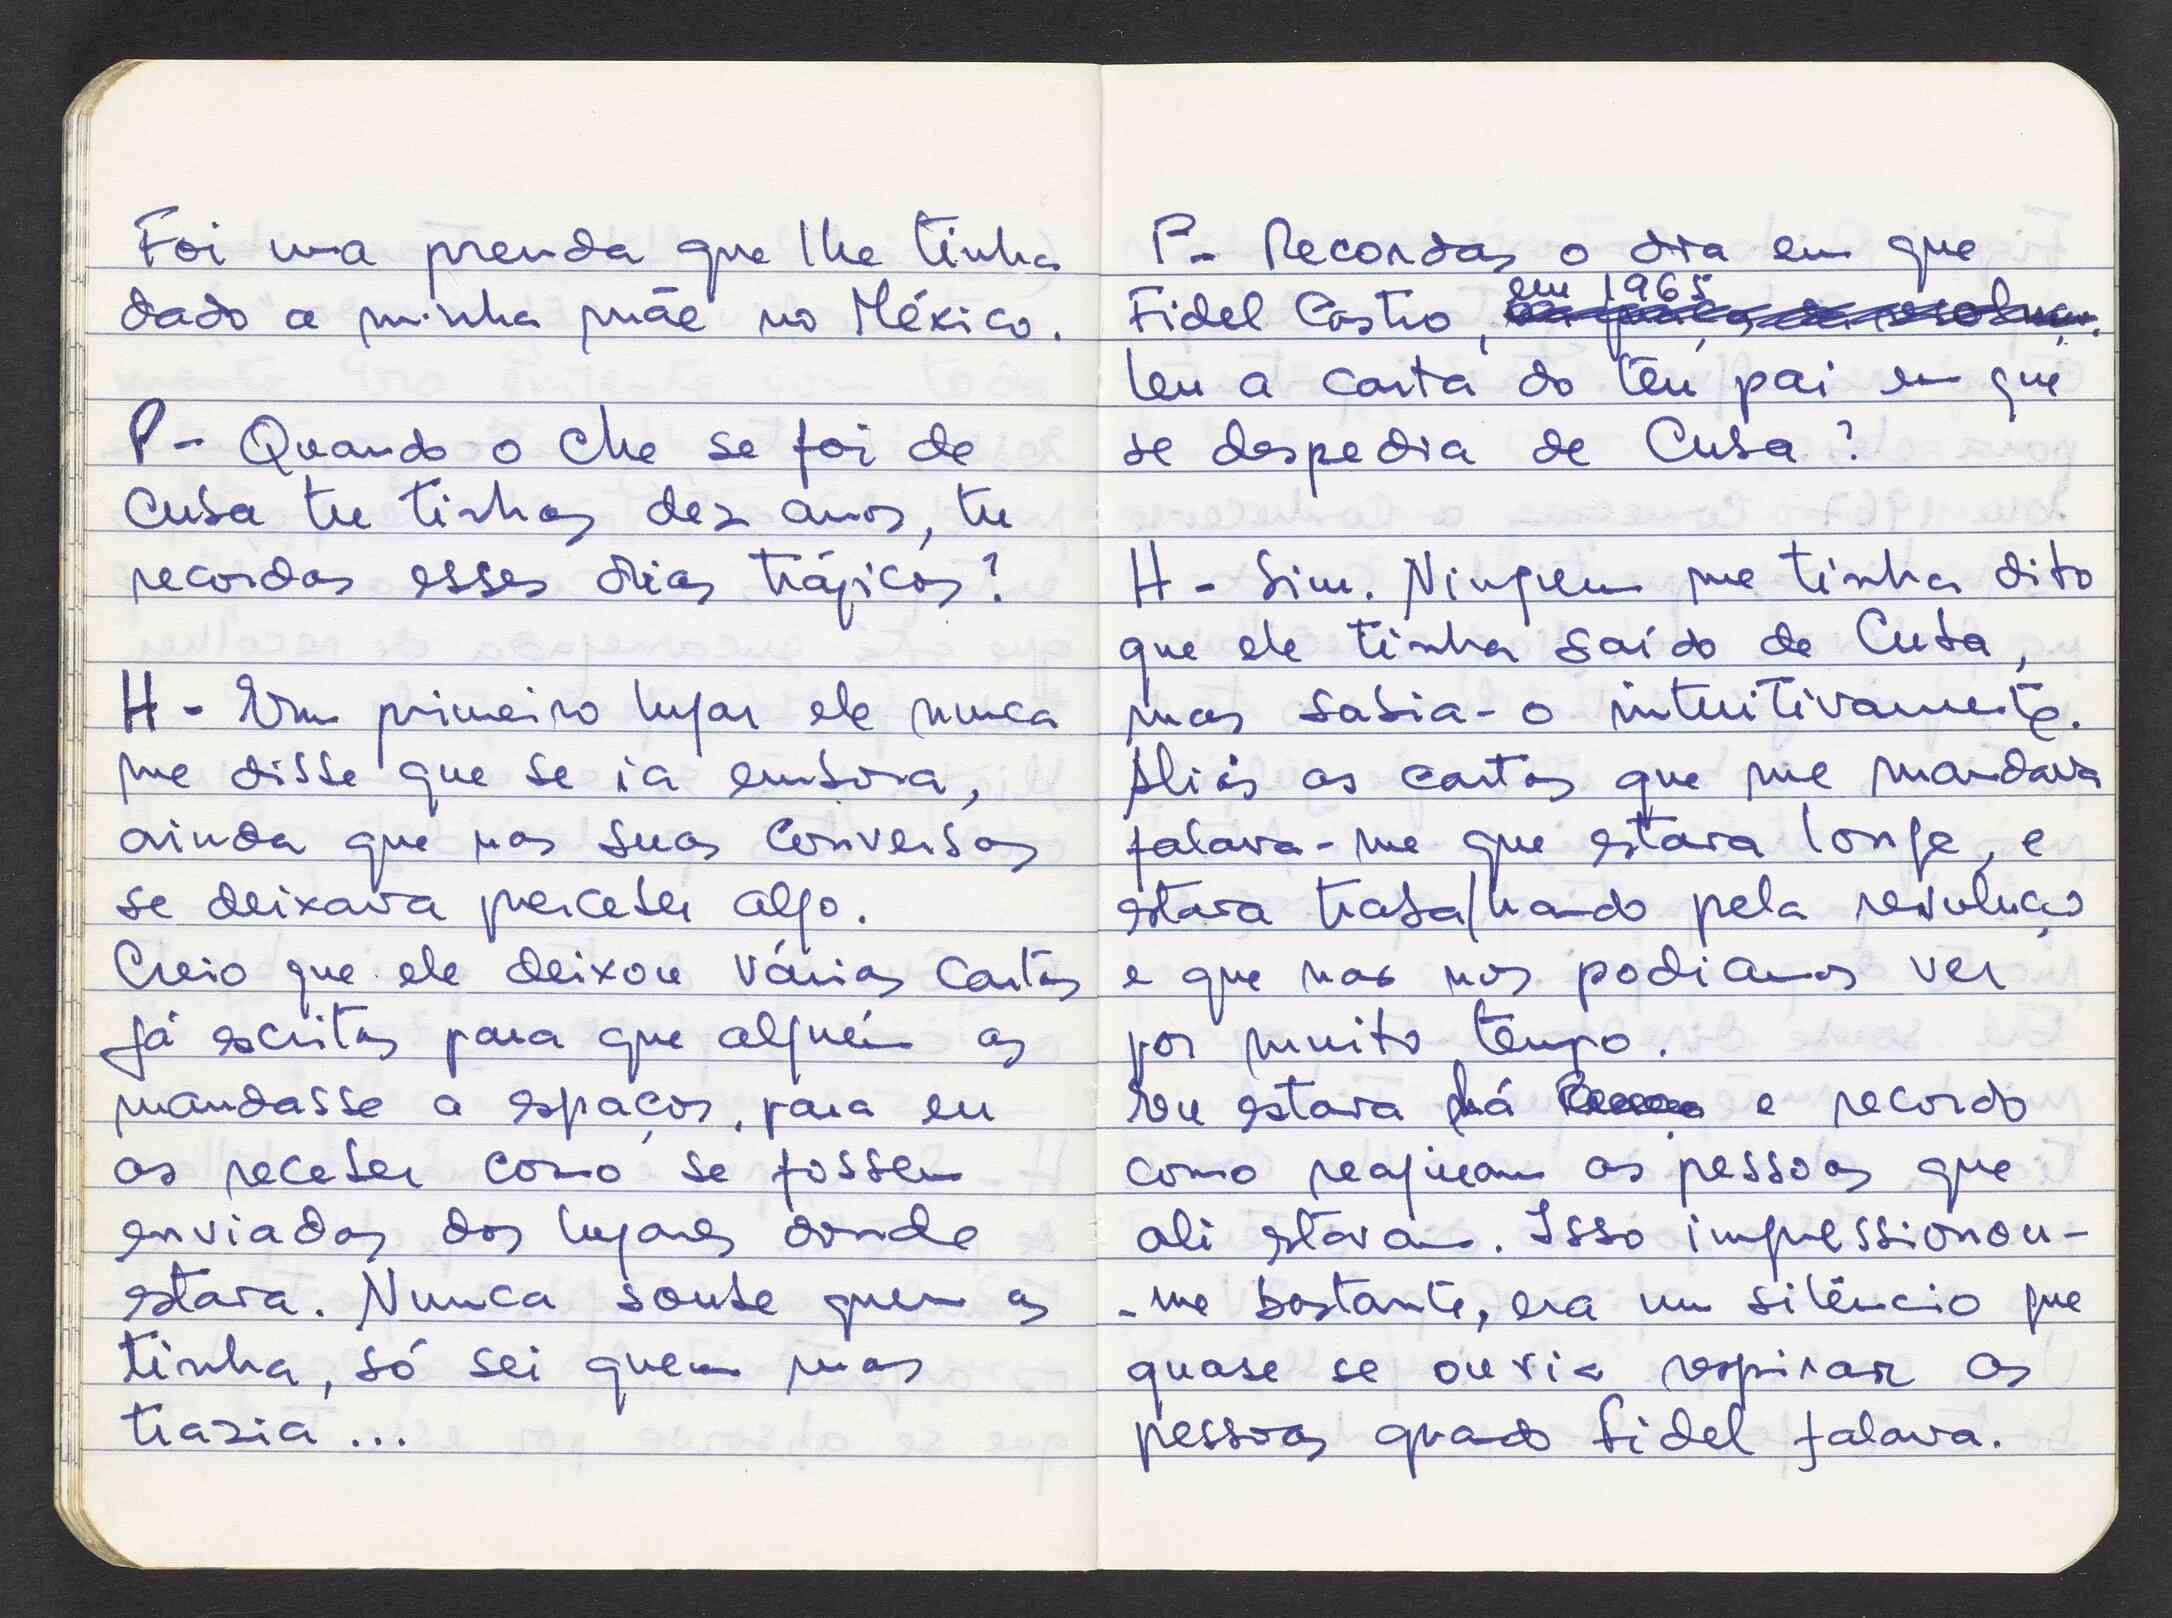 Foi uma prenda que lhe tinha
dado a minha mãe no México.
P- Quando o Che se foi de
Cuba tu tinhas dez anos, tu
recordas esses dias trágicos?
H - Em primeiro lugar ele nunca
me disse que se ia embora,
ainda que nas suas conversas
se deixava perceber algo.
Creio que ele deixou várias cartas
já escritas para que alguém as
mandasse a espaços, para eu
as receber como se fossem
enviadas dos lugares donde
estava. Nunca soube quem as
tinha, só sei quem mas
trazia...
P- Recordas o dia em que
em 1965
Fidel Castro,
leu a carta do teu pai em que
se despedia de Cuba?
H - Sim. Ninguem me tinha dito
que ele tinha saído de Cuba,
mas sabia-o intuitivamente.
Aliás as cartas que me mandava
falava-me que estava longe, e
estava trabalhando pela revolução
e que não nos podiamos ver
por muito tempo.
Eu estava lá e recordo
como reagiram as pessoas que
ali estavam. Isso impressionou-
-me bastante, era um silêncio que
quase se ouvia respirar as
pessoas quando Fidel falava.